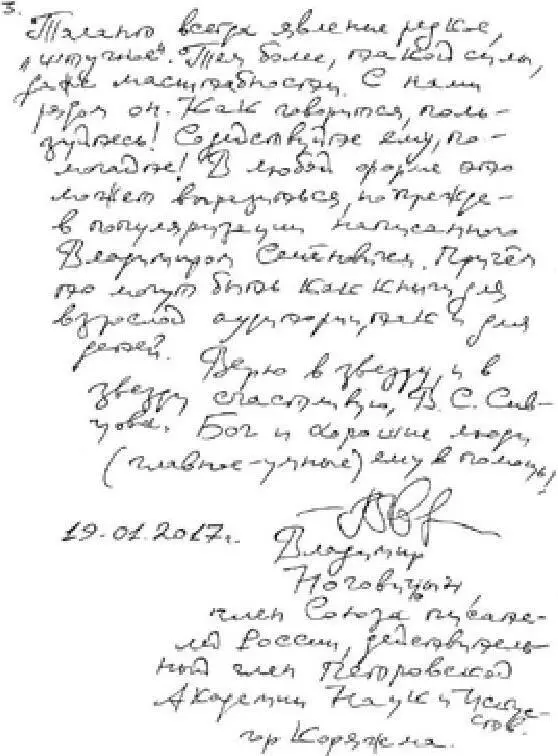 3.
Талант всегда явление редкое,
„штучное“. Тем более, такой силы,
даже масштабности. С нами
рядом он. Как говорится, поль-
зуйтесь! Содействуйте ему, по-
могайте! В любой форме это
может выразиться, но прежде-
в популяризации написанного
Владимиром Семёновичем. Причём
это могут быть как книги для
взрослой аудитории, так и для
детей. Верю в звезду, и в
звезду счастливую, В. С. Сив-
цова. Бог и хорошие люди
(главное-умные) ему в помощь!
19.01.2017г.
Владимир
Ноговицын,
член Союза писате-
лей России, действитель-
ный член Петровской
Академии Наук и Искус-
ств.
гор Коряжма.